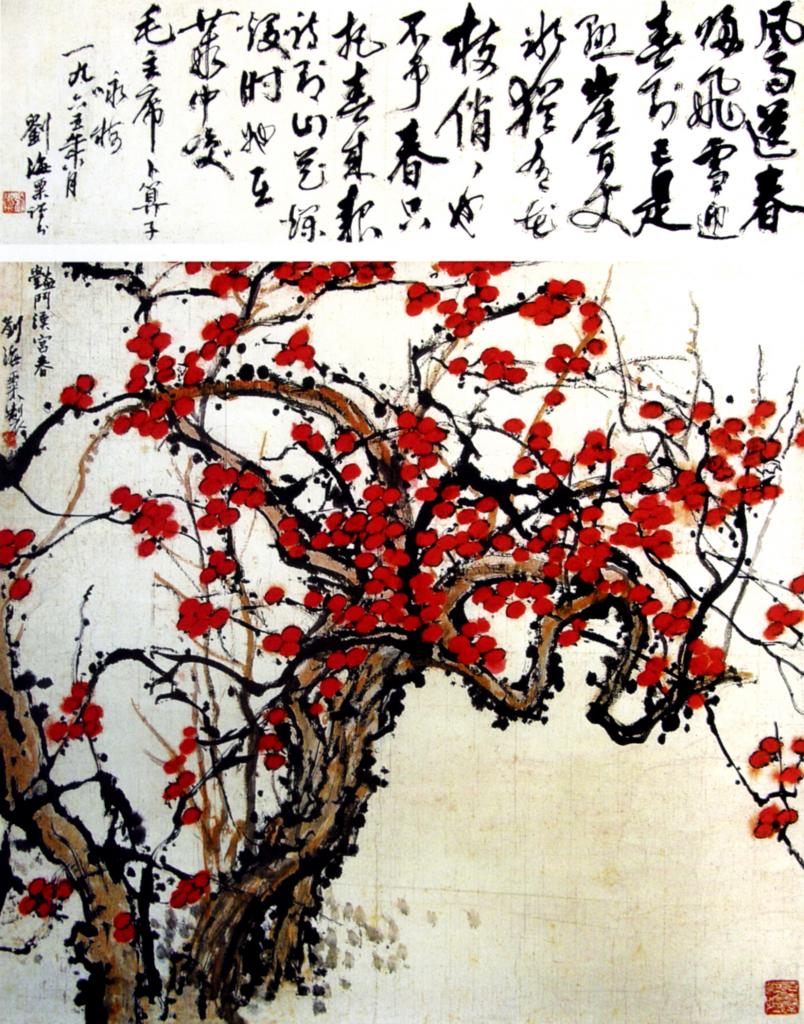 風雨送春
歸飛雪迎
春到已是
懸崖百丈
冰猶有花
枝俏〻也
不争春只
把春来報
待到山花爛
漫時她在
叢中笑
毛主席卜算子
咏梅
一九六五月
劉海粟
豔鬥漢宮春
劉海粟